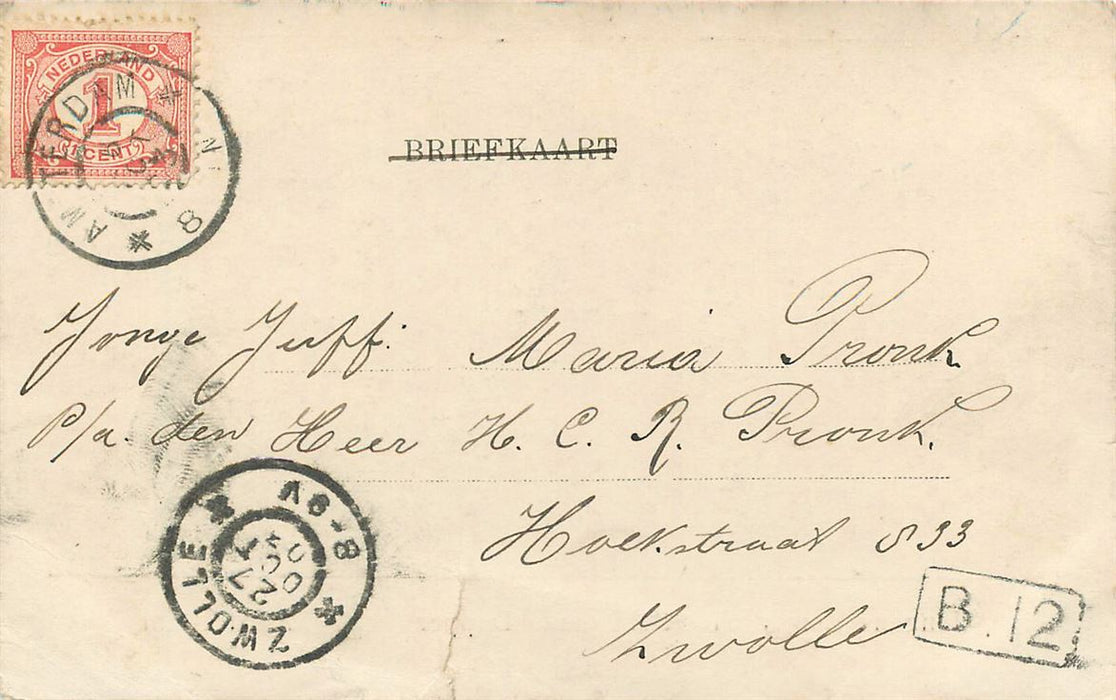 NEDERLAND
1
1 CENT
AMSTERDAM
8
BRIEFKAART
Jonge Juff. Maria Pronk
p/a. den Heer H. C. R. Pronk.
Hoekstraat 833
Zwolle
ZWOLLE 6-8V
27 OCT
03
B 12